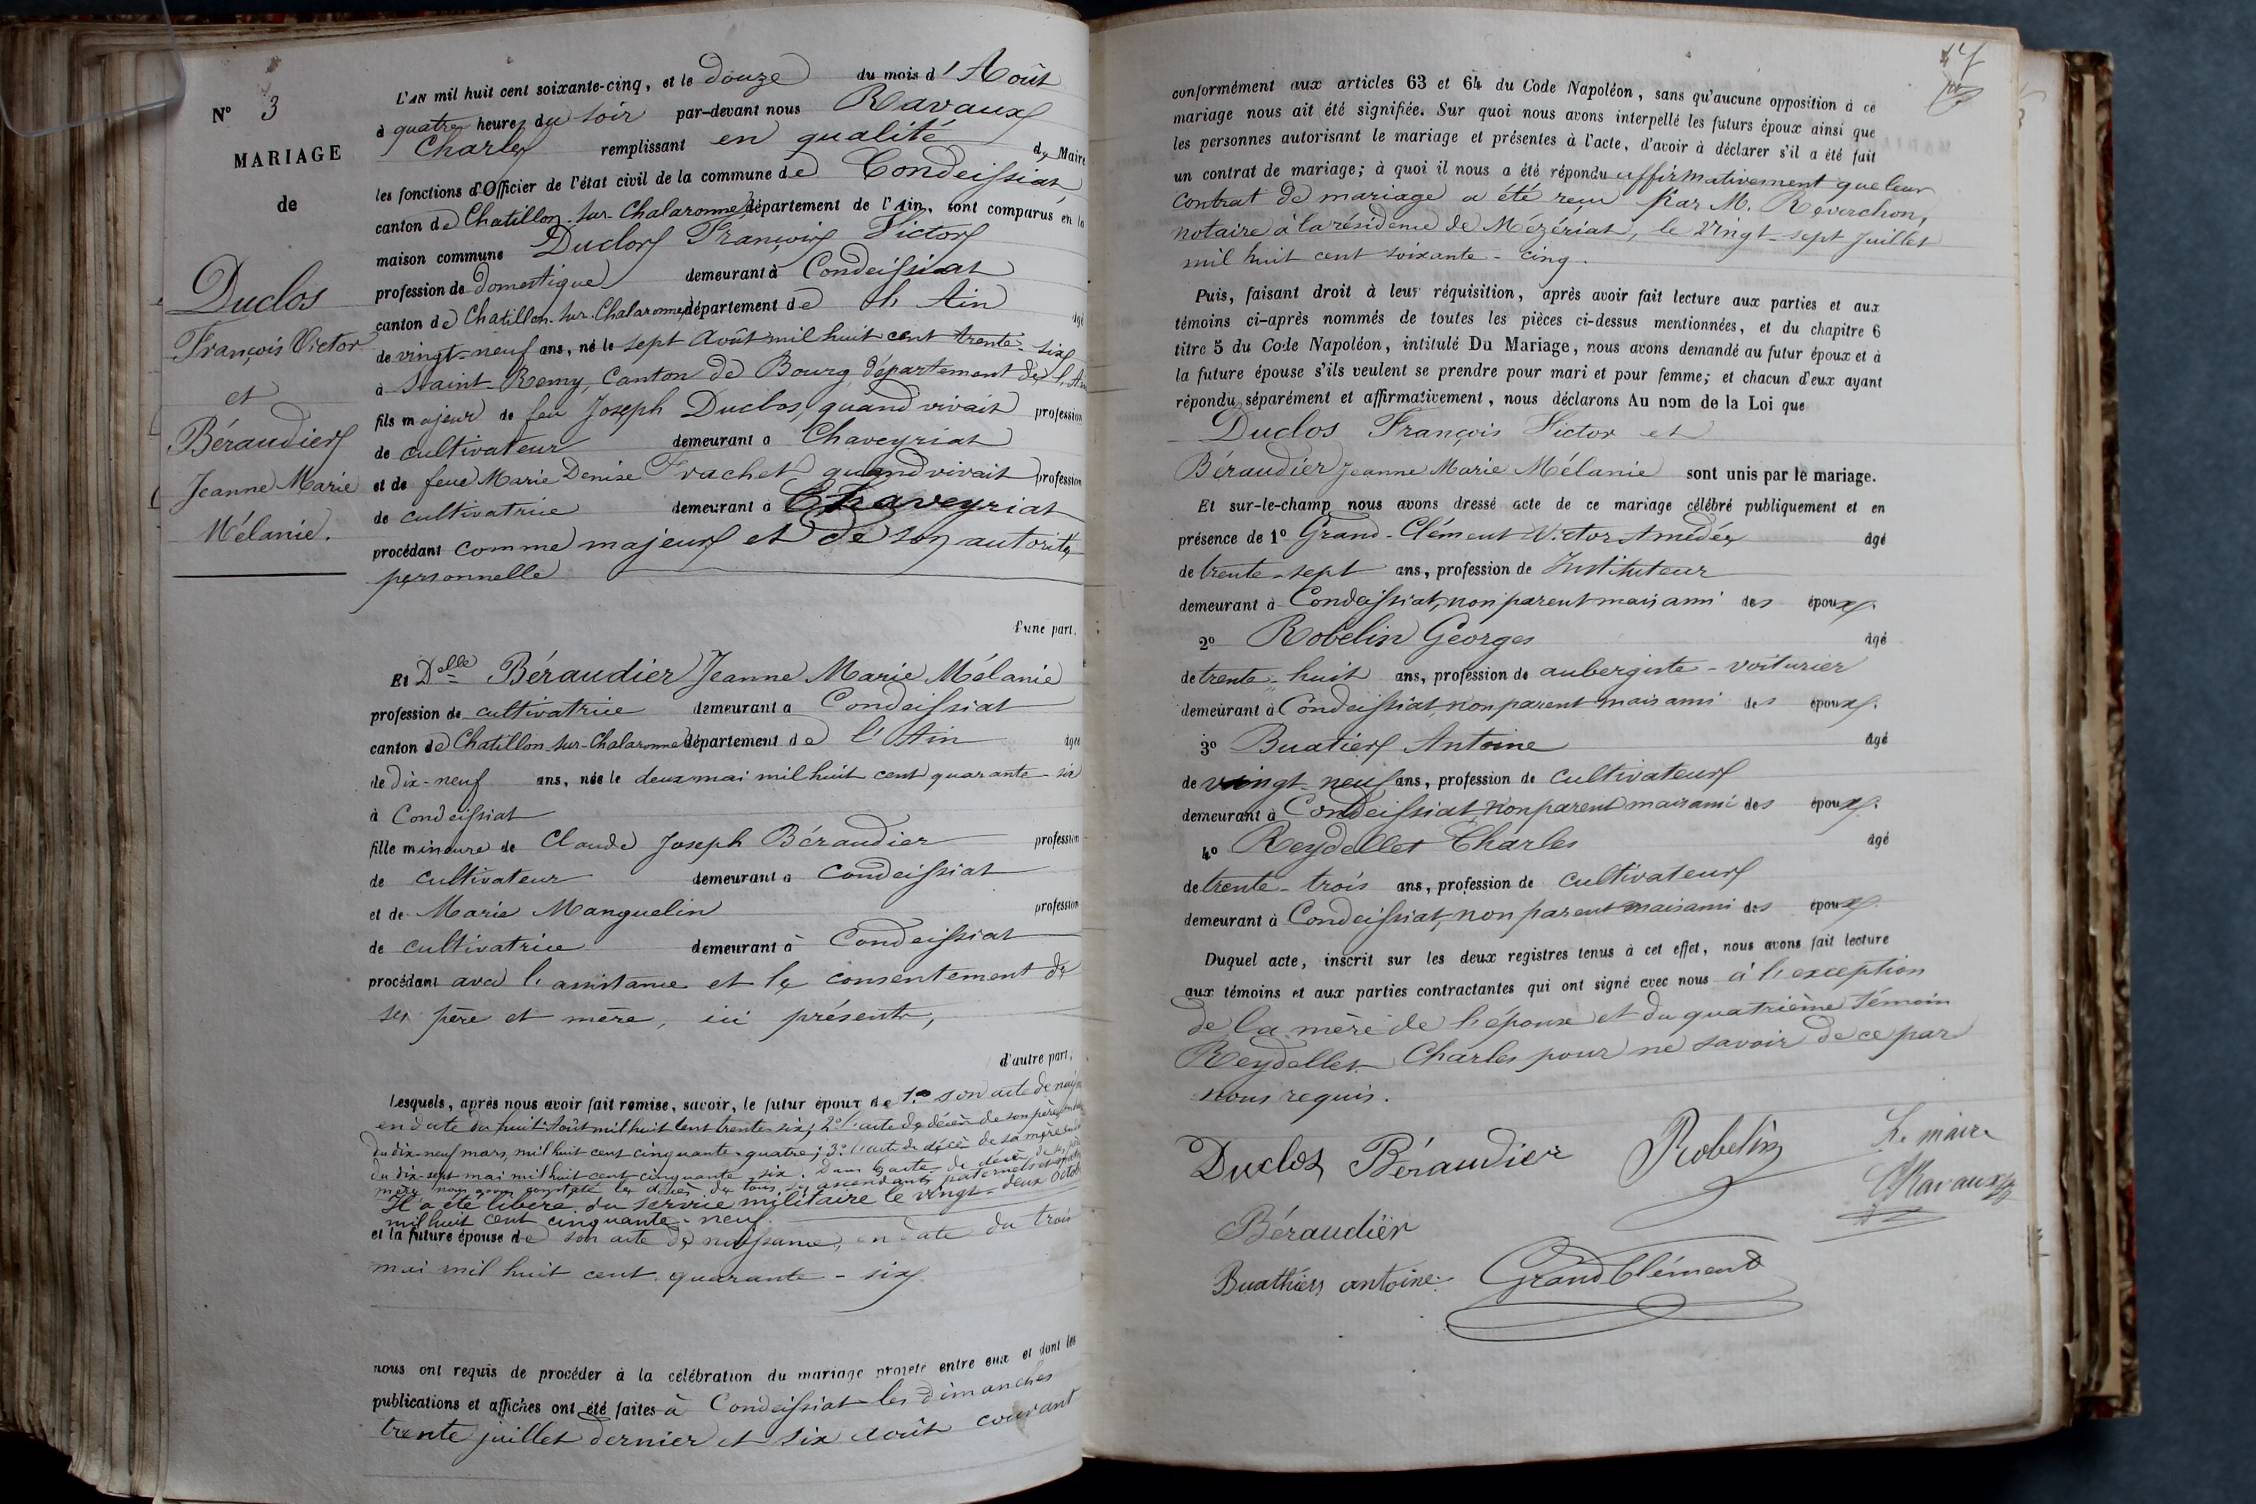 N° 3
MARIAGE
de
Duclos
François Victor
et
Béraudier
Jeanne Marie
Mélanie.
L'AN mil huit cent soixante-cinq, et le douze du mois d'Août
à quatre heures du soir par-devant nous Ravaux
Charles remplissant en qualité de Maire
les fonctions d'Officier de l'état civil de la commune de Condeissiat
canton de Chatillon-sur-Chalaronne département de l'Ain, sont comparus en la
maison commune Duclos François Victor
profession de domestique demeurant à Condeissiat
canton de Chatillon-sur-Chalaronne département de l'Ain âgé
de vingt-neuf ans, né le sept Août mil huit cent trente-six
à Saint-Remy, Canton de Bourg, département de l'Ain
fils majeur de feu Joseph Duclos, quand vivait profession
de cultivateur demeurant à Chaveyriat
et de feue Marie Denise Frachet quand vivait profession
de cultivatrice demeurant à Chaveyriat
procédant comme majeur et de son autorité
personnelle
d'une part,
Et Delle Béraudier Jeanne Marie Mélanie
profession de cultivatrice demeurant à Condeissiat
canton de Chatillon-sur-Chalaronne département de l'Ain âgée
de dix-neuf ans, née le deux mai mil huit cent quarante-six
à Condeissiat
fille mineure de Claude Joseph Béraudier profession
de cultivateur demeurant à Condeissiat
et de Marie Manguelin profession
de cultivatrice demeurant à Condeissiat
procédant avec l'assistance et le consentement de
ses père et mère, ici présents,
d'autre part,
Lesquels, après nous avoir fait remise, savoir, le futur époux de 1.° son acte de
en date du huit Août mil huit cent trente six; 2.° l'acte de décès de son père
du dix-neuf mars, mil huit cent cinquante-quatre; 3.° l'acte de décès de sa mère
du dix-sept mai mil huit cent cinquante six. Dans l'acte de décès de
mère nous avons constaté les décès de tous ses ascendants paternels et
Il a été libéré du service militaire le vingt-deux Octob
mil huit cent cinquante-neuf.
et la future épouse de son acte de naissance, en date du trois
mai mil huit cent quarante-six
nous ont requis de procéder à la célébration du mariage projeté entre eux et dont les
publications et affiches ont été faites à Condeissiat les dimanches
trente juillet dernier et six août courant
47
conformément aux articles 63 et 64 du Code Napoléon, sans qu'aucune opposition à ce
mariage nous ait été signifiée. Sur quoi nous avons interpellé les futurs époux ainsi que
les personnes autorisant le mariage et présentes à l'acte, d'avoir à déclarer s'il a été fait
un contrat de mariage; à quoi il nous a été répondu affirmativement que leur
contrat de mariage a été reçu par M. Réverchon,
notaire à la résidence de Mézériat, le vingt-sept Juillet
mil huit cent soixante-cinq.
Puis, faisant droit à leur réquisition, après avoir fait lecture aux parties et aux
témoins ci-après nommés de toutes les pièces ci-dessus mentionnées, et du chapitre 6
titre 5 du Code Napoléon, intitulé Du Mariage, nous avons demandé au futur époux et à
la future épouse s'ils veulent se prendre pour mari et pour femme; et chacun d'eux ayant
répondu séparément et affirmativement, nous déclarons Au nom de la Loi que
Duclos François Victor et
Béraudier Jeanne Marie Mélanie sont unis par le mariage.
Et sur-le-champ nous avons dressé acte de ce mariage célébré publiquement et en
présence de 1° Grand-Clément Victor Amédée âgé
de trente-sept ans, profession de Instituteur
demeurant à Condeissiat, non parent mais ami des époux.
2° Robelin Georges âgé
de trente-huit ans, profession de aubergiste-voiturier
demeurant à Condeissiat, non parent mais ami des époux.
3° Buatier Antoine âgé
de vingt-neuf ans, profession de cultivateur
demeurant à Condeissiat, non parent mais ami des époux.
4° Reydellet Charles âgé
de trente-trois ans, profession de cultivateur
demeurant à Condeissiat, non parent mais ami des époux.
Duquel acte, inscrit sur les deux registres tenus à cet effet, nous avons fait lecture
aux témoins et aux parties contractantes qui ont signé avec nous à l'exception
de la mère de l'épouse et du quatrième témoin
Reydellet Charles pour ne savoir de ce par
nous requis.
Duclos Béraudier Robelin Le maire
CRavaux
Béraudier
Buathier antoine. GrandClément